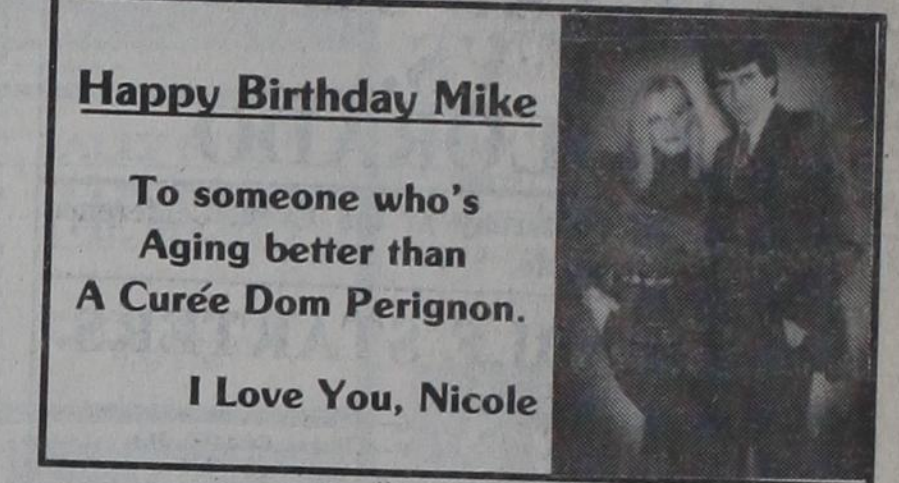 Happy Birthday Mike
To someone who's
Aging better than
A Curée Dom Perignon.
I Love You, Nicole